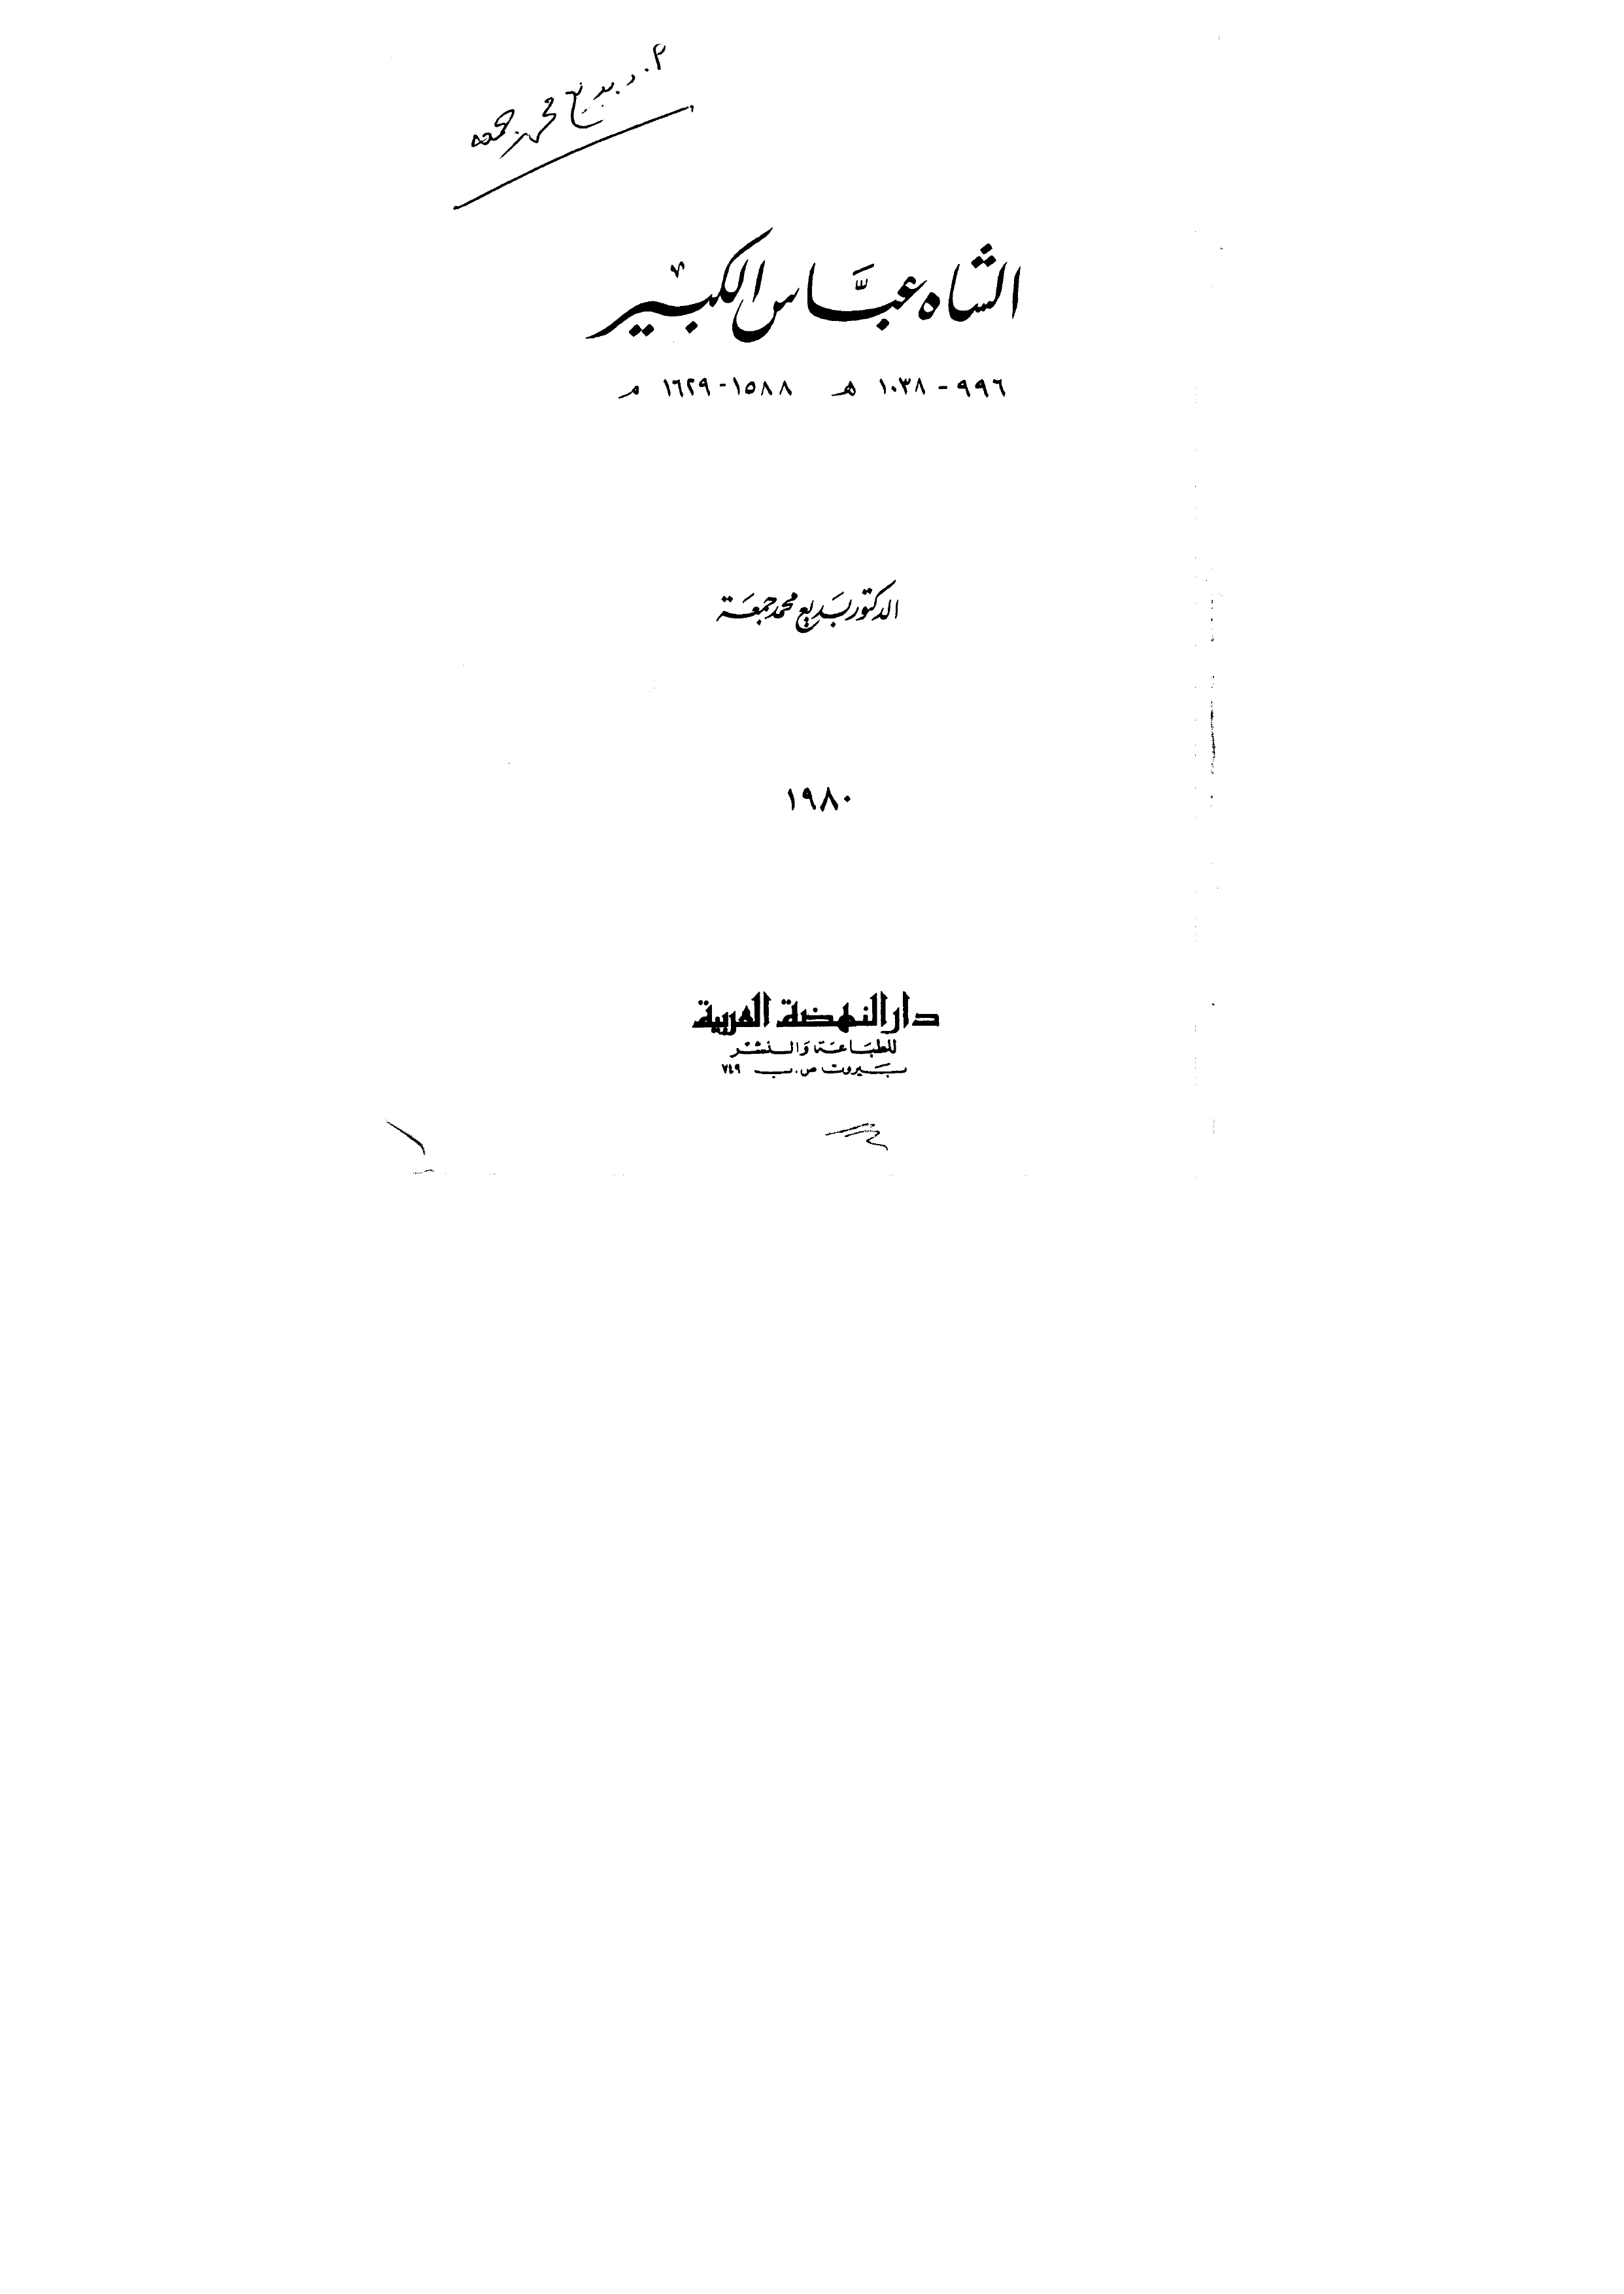 أ.د. بديع محمد جمعه
الشاه عبَّاس الكبير
٩٩٦ - ١٠٣٨ هـ ١٥٨٨-١٦٢٩ م
الدكتور بَديع محمد جمعَة
١٩٨٠
دار النهضة العربية
للطبَاعَة وَالنشر
بَيروت ص.ب ٧٤٩